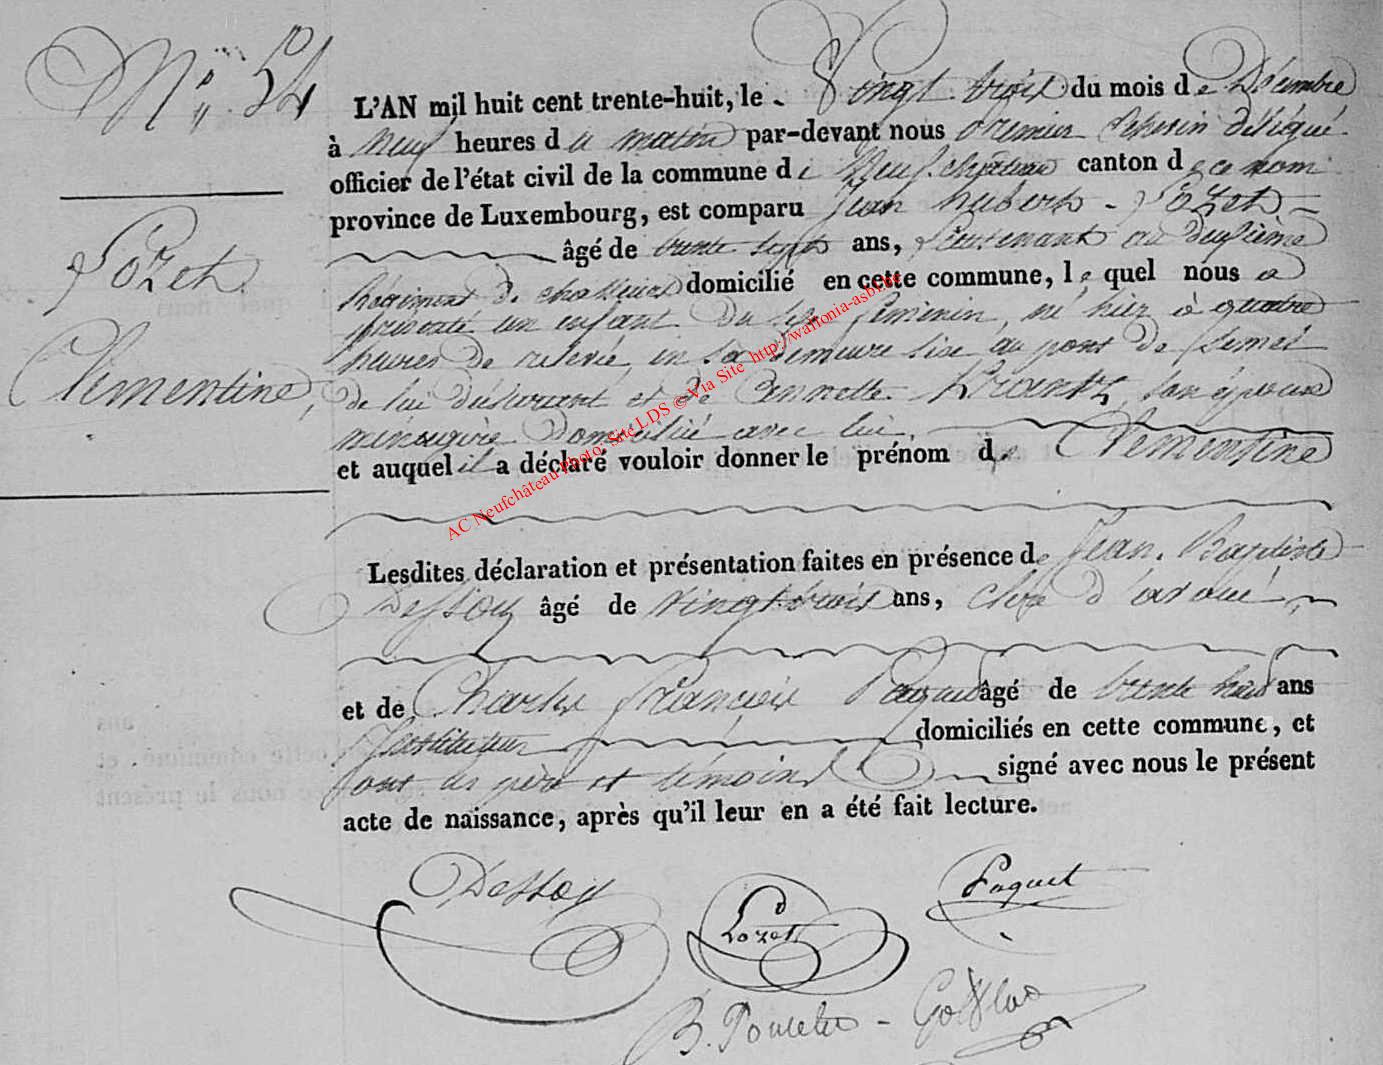 N° 54
Lozet
Clémentine,
L'AN mil huit cent trente-huit, le vingt trois du mois de Décembre
à neuf heures du matin par-devant nous premier Echevin délégué
officier de l'état civil de la commune de Neufchâteau canton de ce nom
province de Luxembourg, est comparu Jean hubert Lozet
âgé de trente sept ans, Lieutenant au deuxième
Régiment de chasseurs domicilié en cette commune, le quel nous a
présenté un enfant du sexe féminin, né hier à quatre
heures de relevée, en sa demeure sise au pont de
de lui déclarant et de Annette son épouse
ménagère domiciliée avec lui
et auquel il a déclaré vouloir donner le prénom de Clémentine
Lesdites déclaration et présentation faites en présence de Jean Baptiste
Dessoy âgé de vingt trois ans, clerc d'avoué,
et de Charles françois Paquet âgé de trente huit ans
Instituteur domiciliés en cette commune, et
ont les père et témoins signé avec nous le présent
acte de naissance, après qu'il leur en a été fait lecture.
Dessoy
Lozet
Paquet
AC Neufchâteau Photo: Site LDS © Via Site http://wallonia-asbl.be